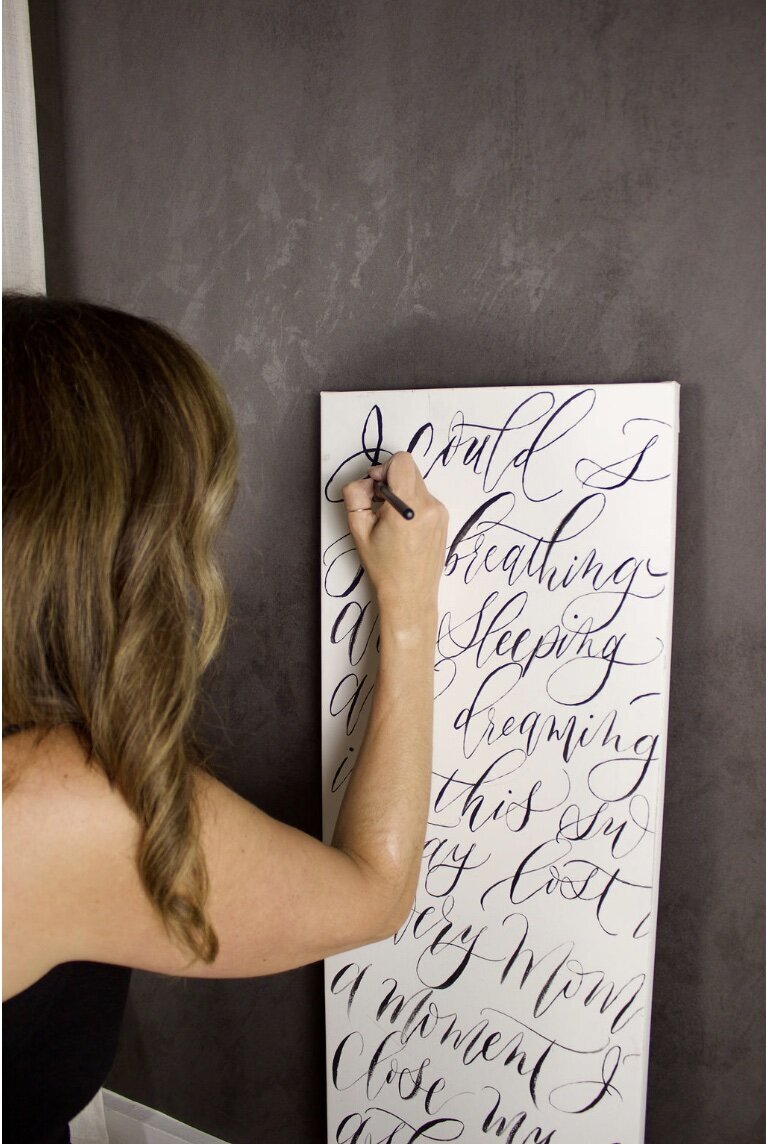 I could s
breathing
sleeping
dreaming
this sw
ay lost
very Mom
a moment I
Close my